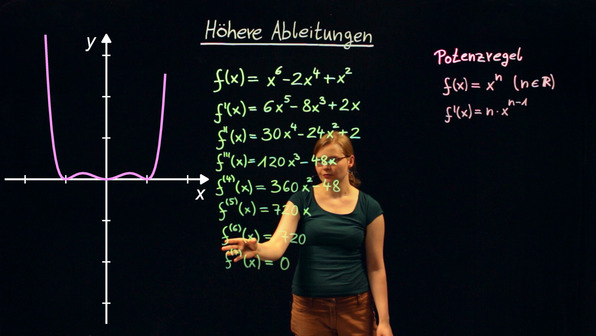 Höhere Ableitungen
y
x
f(x) = x⁶ - 2x⁴ + x²
f'(x) = 6x⁵ - 8x³ + 2x
f''(x) = 30x⁴ - 24x² + 2
f'''(x) = 120x³ - 48x
f⁽⁴⁾(x) = 360x² - 48
f⁽⁵⁾(x) = 720x
f⁽⁶⁾(x) = 720
f⁽⁷⁾(x) = 0
Potenzregel
f(x) = xⁿ (n ∈ ℝ)
f'(x) = n · xⁿ⁻¹